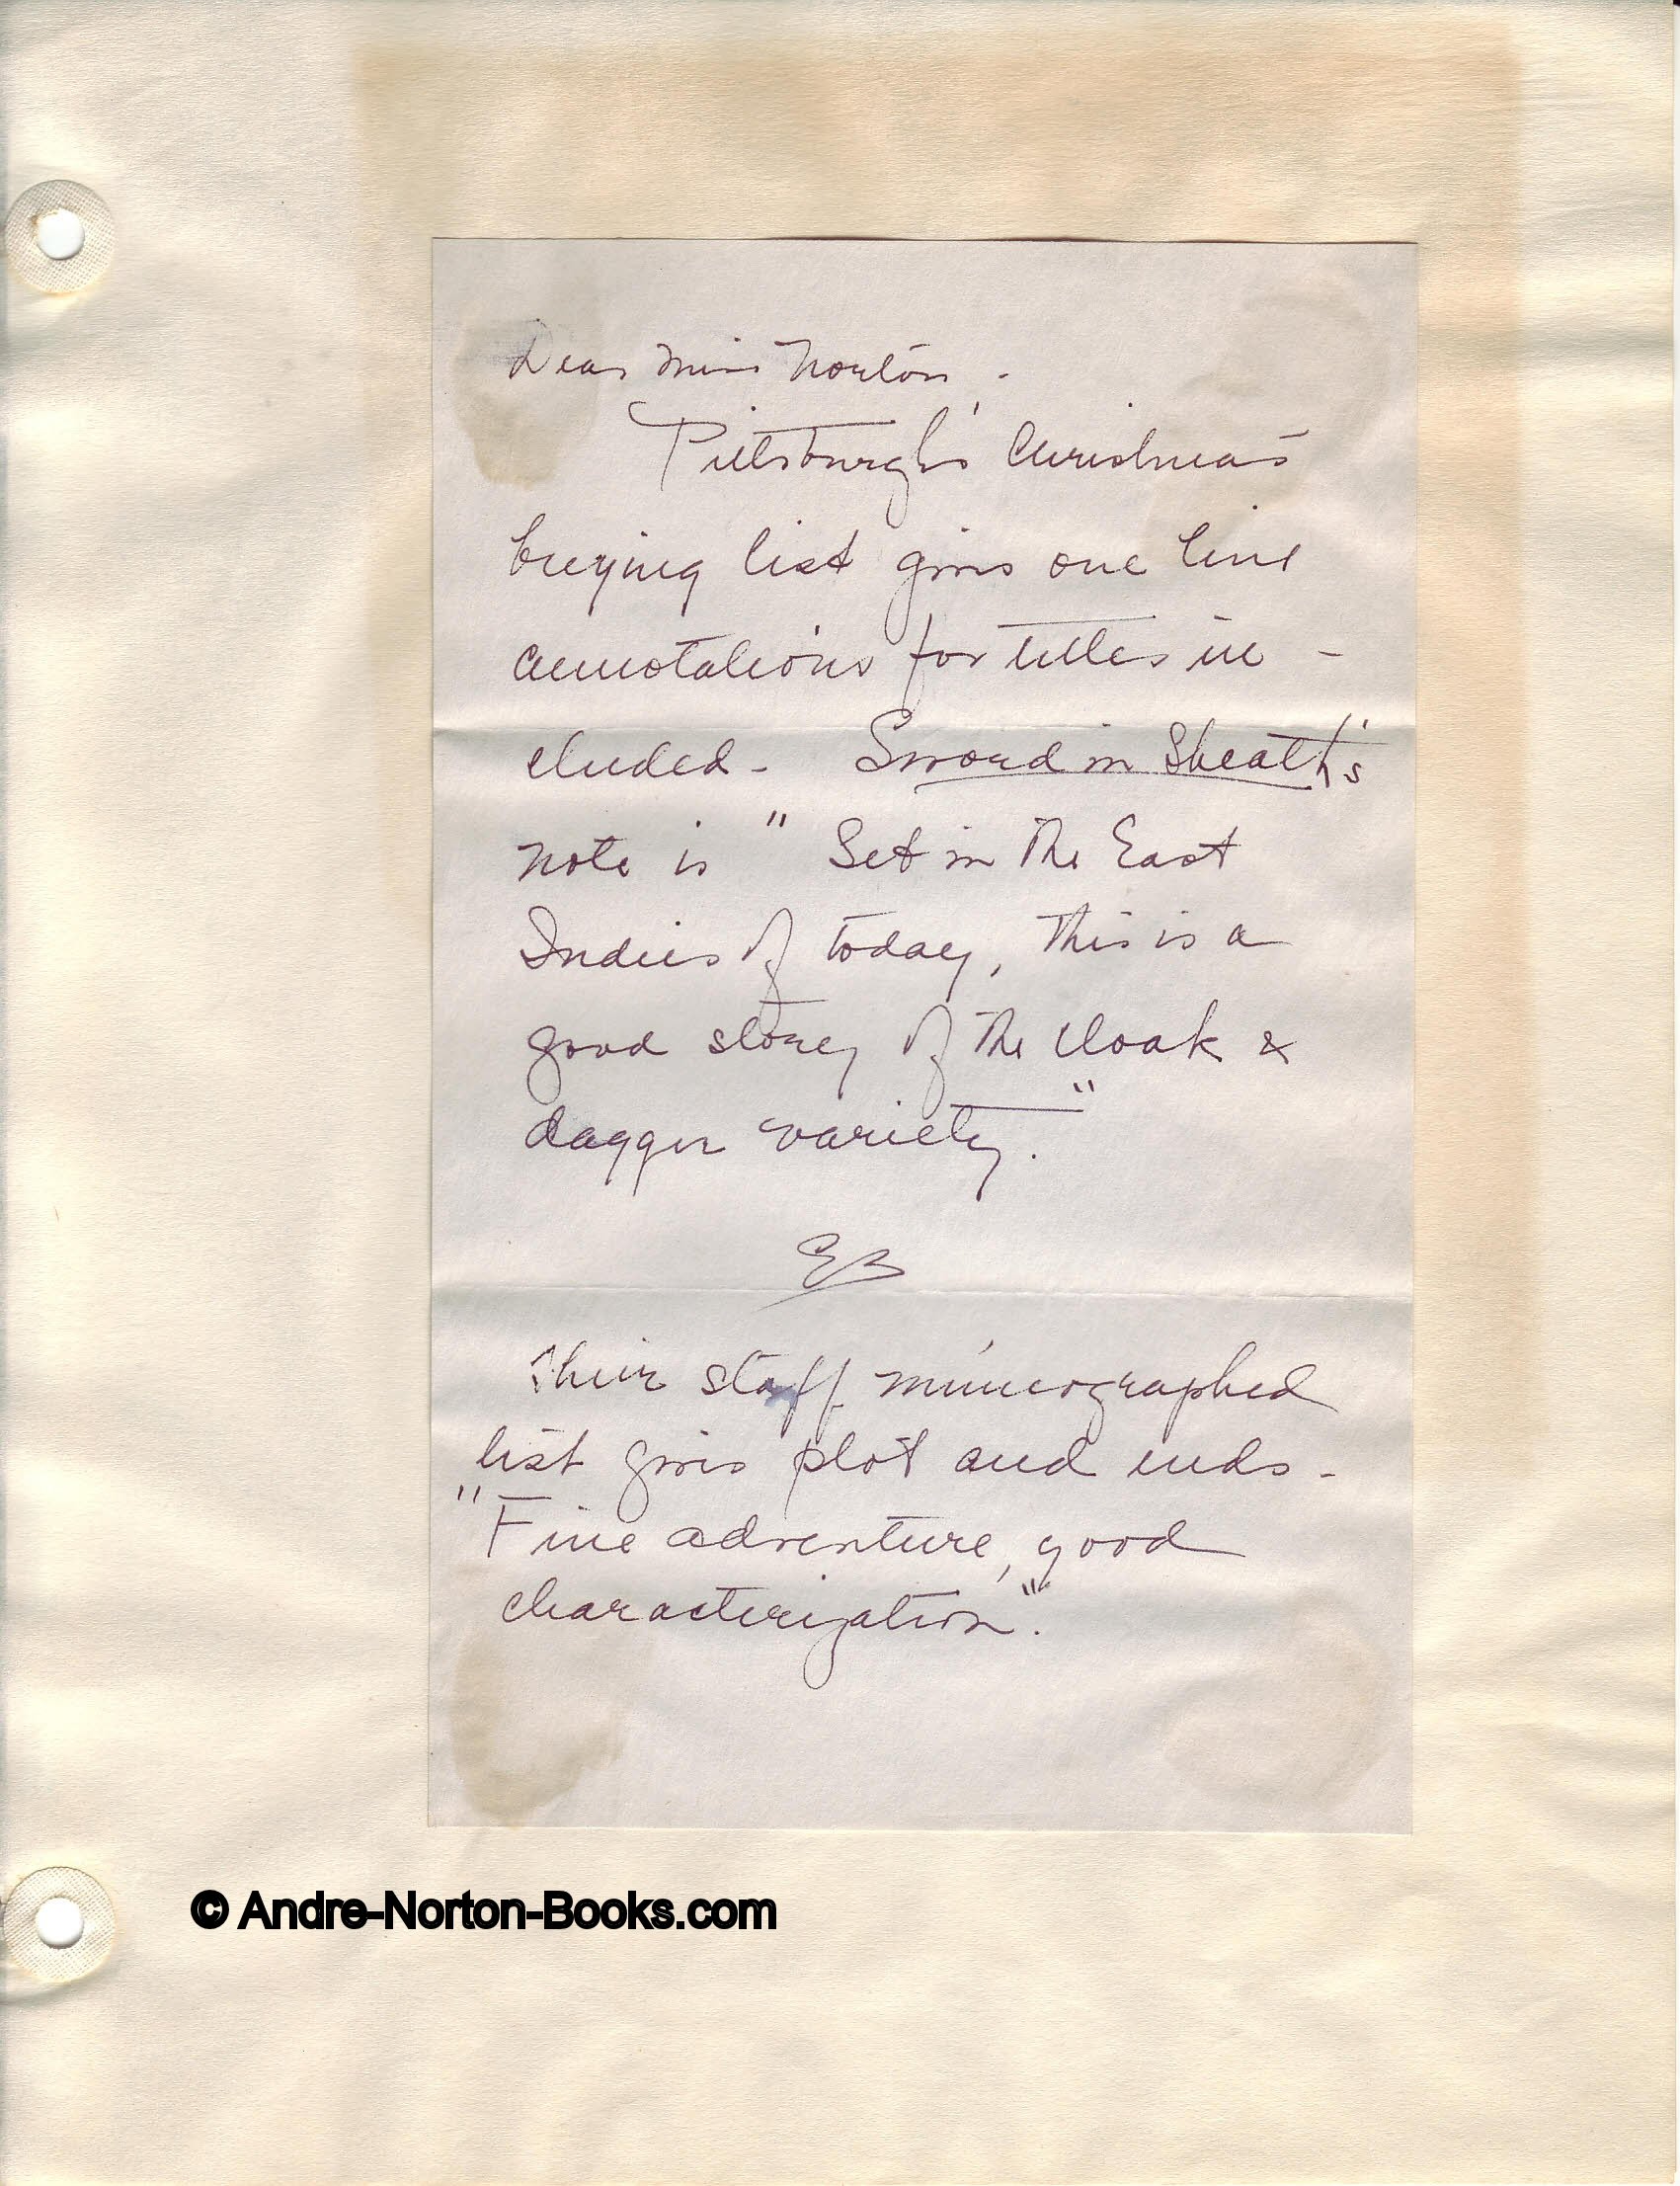 Dear Miss Norton -
Pittsburgh's Christmas
buying list gives one line
annotations for titles in -
cluded - Sword in Sheath's
note is " Set in the East
Indies of today, this is a
good story of the cloak &
dagger variety."
EB
Their staff mimeographed
list gives plot and ends -
"Fine adventure, good
characterization".
© Andre-Norton-Books.com